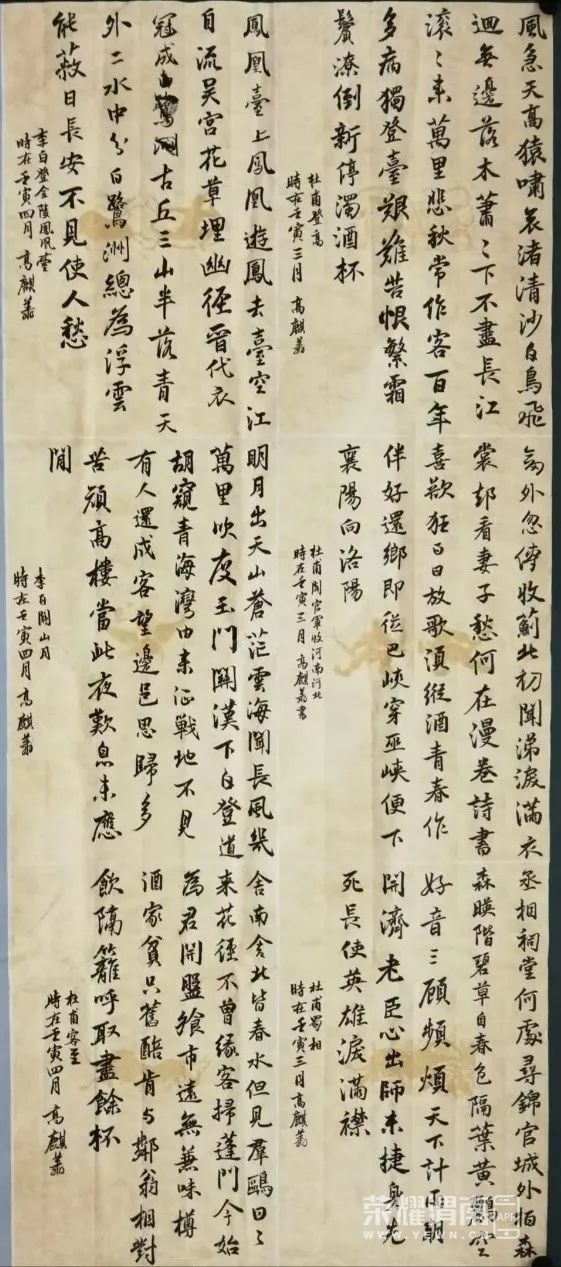 風急天高猿嘯哀渚清沙白鳥飛
迴無邊落木蕭〻下不盡長江
滾〻来萬里悲秋常作客百年
多病獨登臺艱難苦恨繁霜
鬢潦倒新停濁酒杯
杜甫登高
時在壬寅三月 高麒
鳳凰臺上鳳凰遊鳳去臺空江
自流吴宮花草埋幽徑晉代衣
冠成古丘三山半落青天
外二水中分白鷺洲總為浮雲
能蔽日長安不見使人愁
李白登金陵鳳凰臺
時在壬寅四月 高麒
劍外忽傳收薊北初聞涕淚滿衣
裳却看妻子愁何在漫卷詩書
喜欲狂白日放歌須縱酒青春作
伴好還鄉即從巴峽穿巫峽便下
襄陽向洛陽
杜甫聞官軍收河南河北
時在壬寅三月 高麒 書
明月出天山蒼茫雲海間長風幾
萬里吹度玉門關漢下白登道
胡窺青海灣由来征戰地不見
有人還戍客望邊邑思歸多
苦顔高樓當此夜歎息未應
閒
李白關山月
時在壬寅四月 高麒
丞相祠堂何處尋錦官城外柏森
森映階碧草自春色隔葉黄鸝空
好音三顧頻煩天下計兩朝
開濟老臣心出師未捷身先
死長使英雄淚滿襟
杜甫蜀相
時在壬寅三月 高麒
舍南舍北皆春水但見羣鷗日〻
来花徑不曾緣客掃蓬門今始
為君開盤飧市遠無兼味樽
酒家貧只舊醅肯与鄰翁相對
飲隔籬呼取盡餘杯
杜甫客至
時在壬寅四月 高麒
荣耀渭南